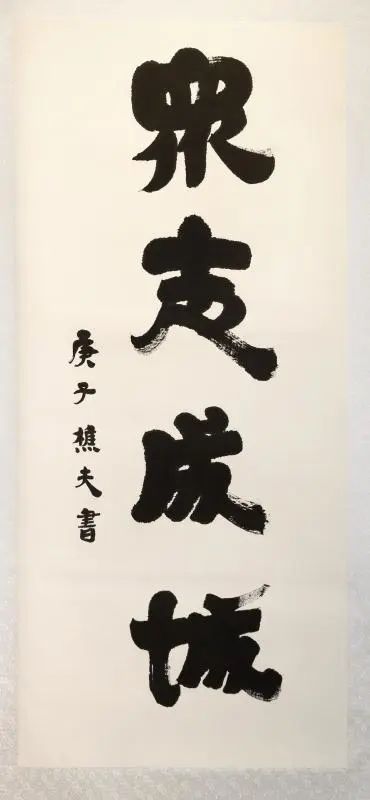 眾志成城
庚子樵夫書